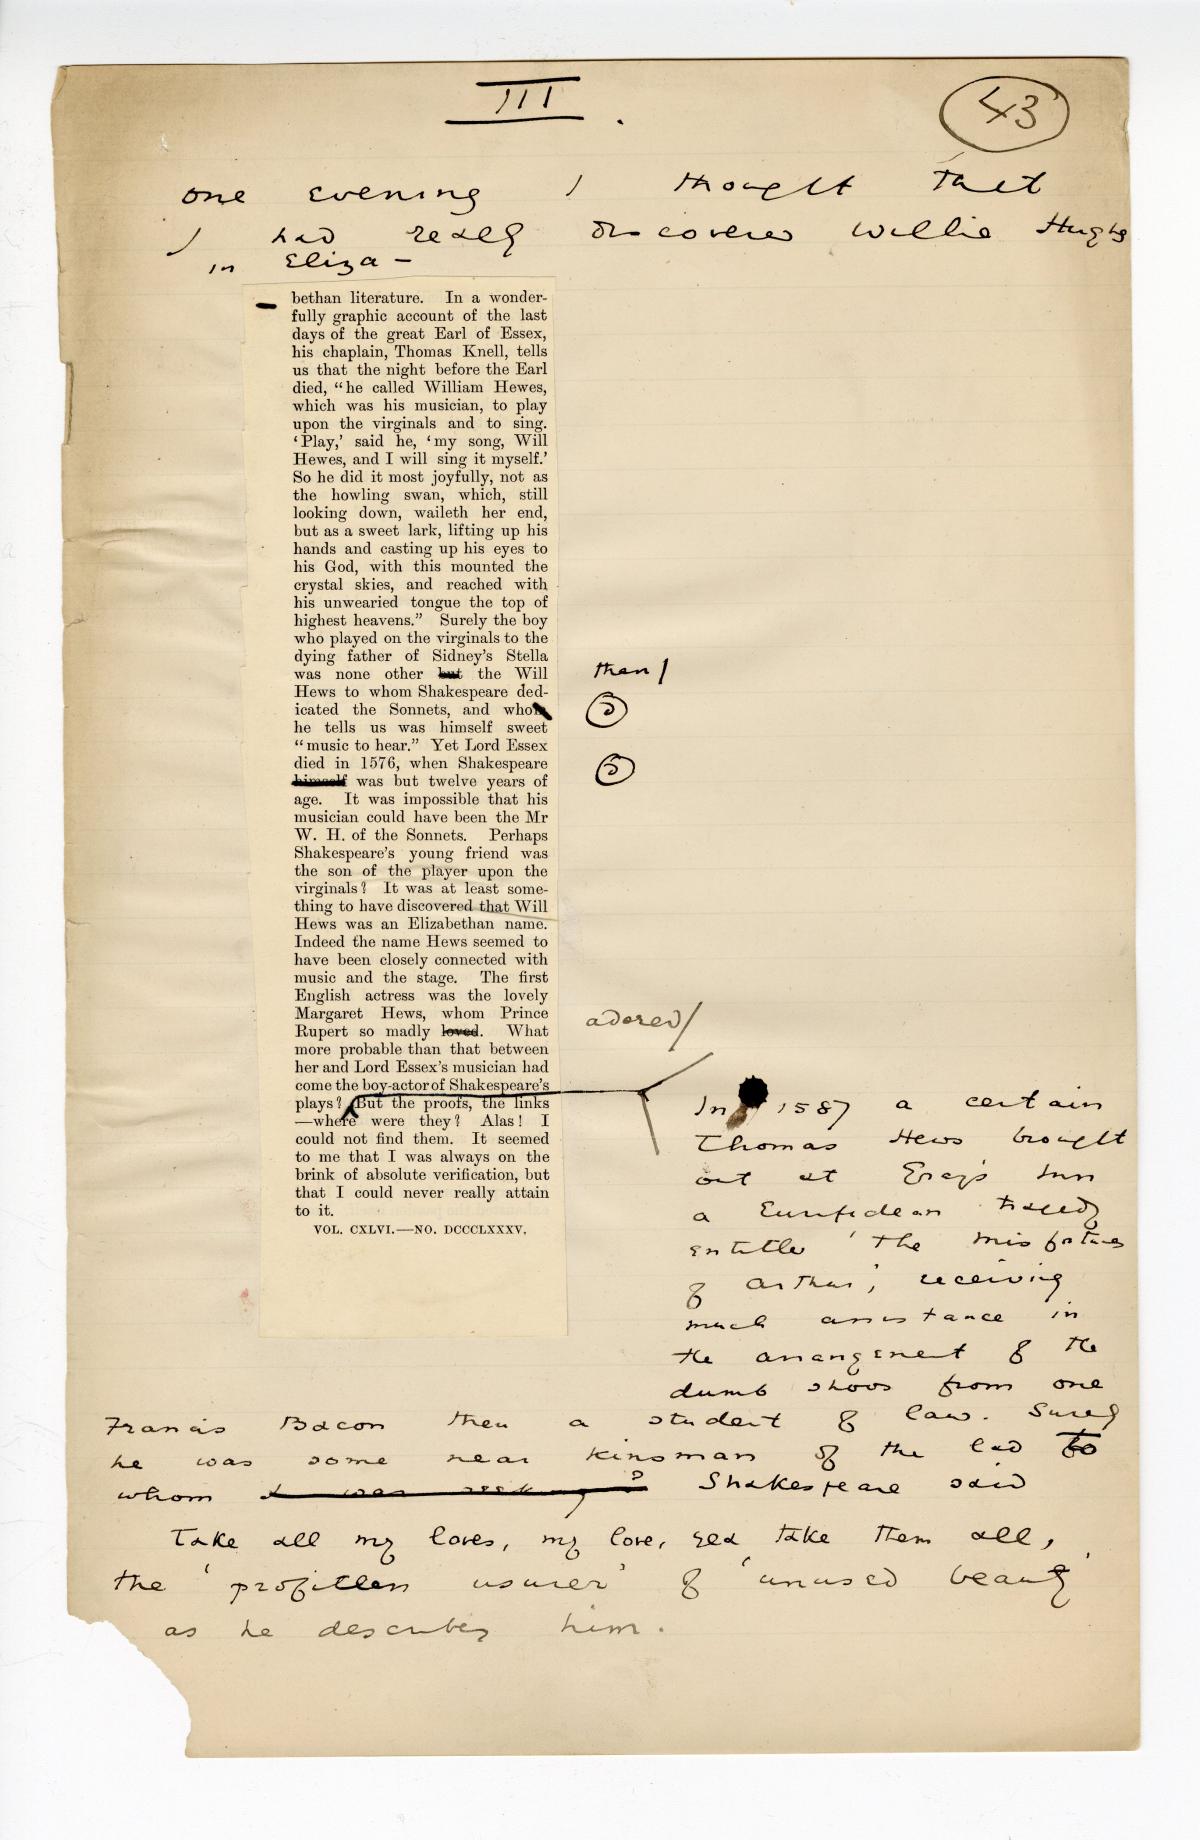 III.
43
One evening I thought that
I had really discovered Willie Hughes
in Eliza-
bethan literature. In a wonder-
fully graphic account of the last
days of the great Earl of Essex,
his chaplain, Thomas Knell, tells
us that the night before the Earl
died, “he called William Hewes,
which was his musician, to play
upon the virginals and to sing.
‘Play,’ said he, ‘my song, Will
Hewes, and I will sing it myself.’
So he did it most joyfully, not as
the howling swan, which, still
looking down, waileth her end,
but as a sweet lark, lifting up his
hands and casting up his eyes to
his God, with this mounted the
crystal skies, and reached with
his unwearied tongue the top of
highest heavens.” Surely the boy
who played on the virginals to the
dying father of Sidney’s Stella
was none other but the Will
than/
Hews to whom Shakespeare ded-
icated the Sonnets, and whom
he tells us was himself sweet
“music to hear.” Yet Lord Essex
died in 1576, when Shakespeare
himself was but twelve years of
age. It was impossible that his
musician could have been the Mr
W. H. of the Sonnets. Perhaps
Shakespeare’s young friend was
the son of the player upon the
virginals? It was at least some-
thing to have discovered that Will
Hews was an Elizabethan name.
Indeed the name Hews seemed to
have been closely connected with
music and the stage. The first
English actress was the lovely
Margaret Hews, whom Prince
Rupert so madly loved. What
adored/
more probable than that between
her and Lord Essex’s musician had
come the boy-actor of Shakespeare’s
plays? But the proofs, the links
—where were they? Alas! I
could not find them. It seemed
to me that I was always on the
brink of absolute verification, but
that I could never really attain
to it.
VOL. CXLVI.—NO. DCCCLXXXV.
In 1587 a certain
Thomas Hews brought
out at Gray's Inn
a Euripidean tragedy
entitled 'The Misfortunes
of Arthur', receiving
much assistance in
the arrangement of the
dumb shows from one
Francis Bacon then a student of law. Surely
he was some near kinsman of the lad to
whom I was seeking? Shakespeare said
Take all my loves, my love, yea take them all,
the 'profitless usurer' of 'unused beauty'
as he describes him.